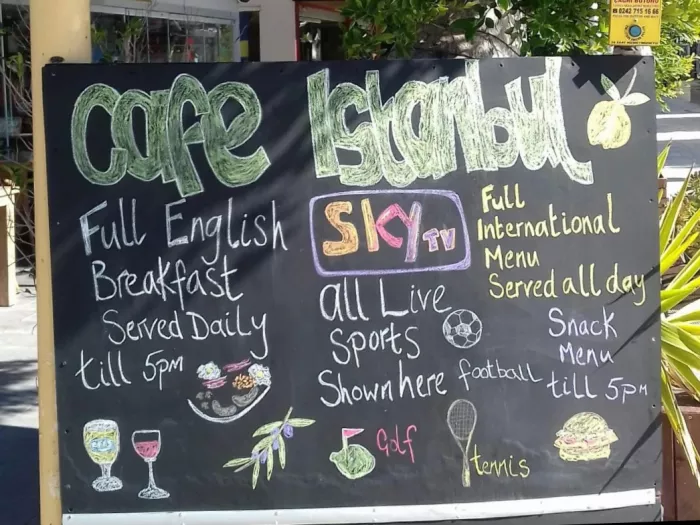 Cafe Istanbul
Full English
Breakfast
Served Daily
till 5pm
SKY TV
all Live
Sports
Shown here
football
Full
International
Menu
Served all day
Snack
Menu
till 5pm
Golf
tennis
0242 715 16 66